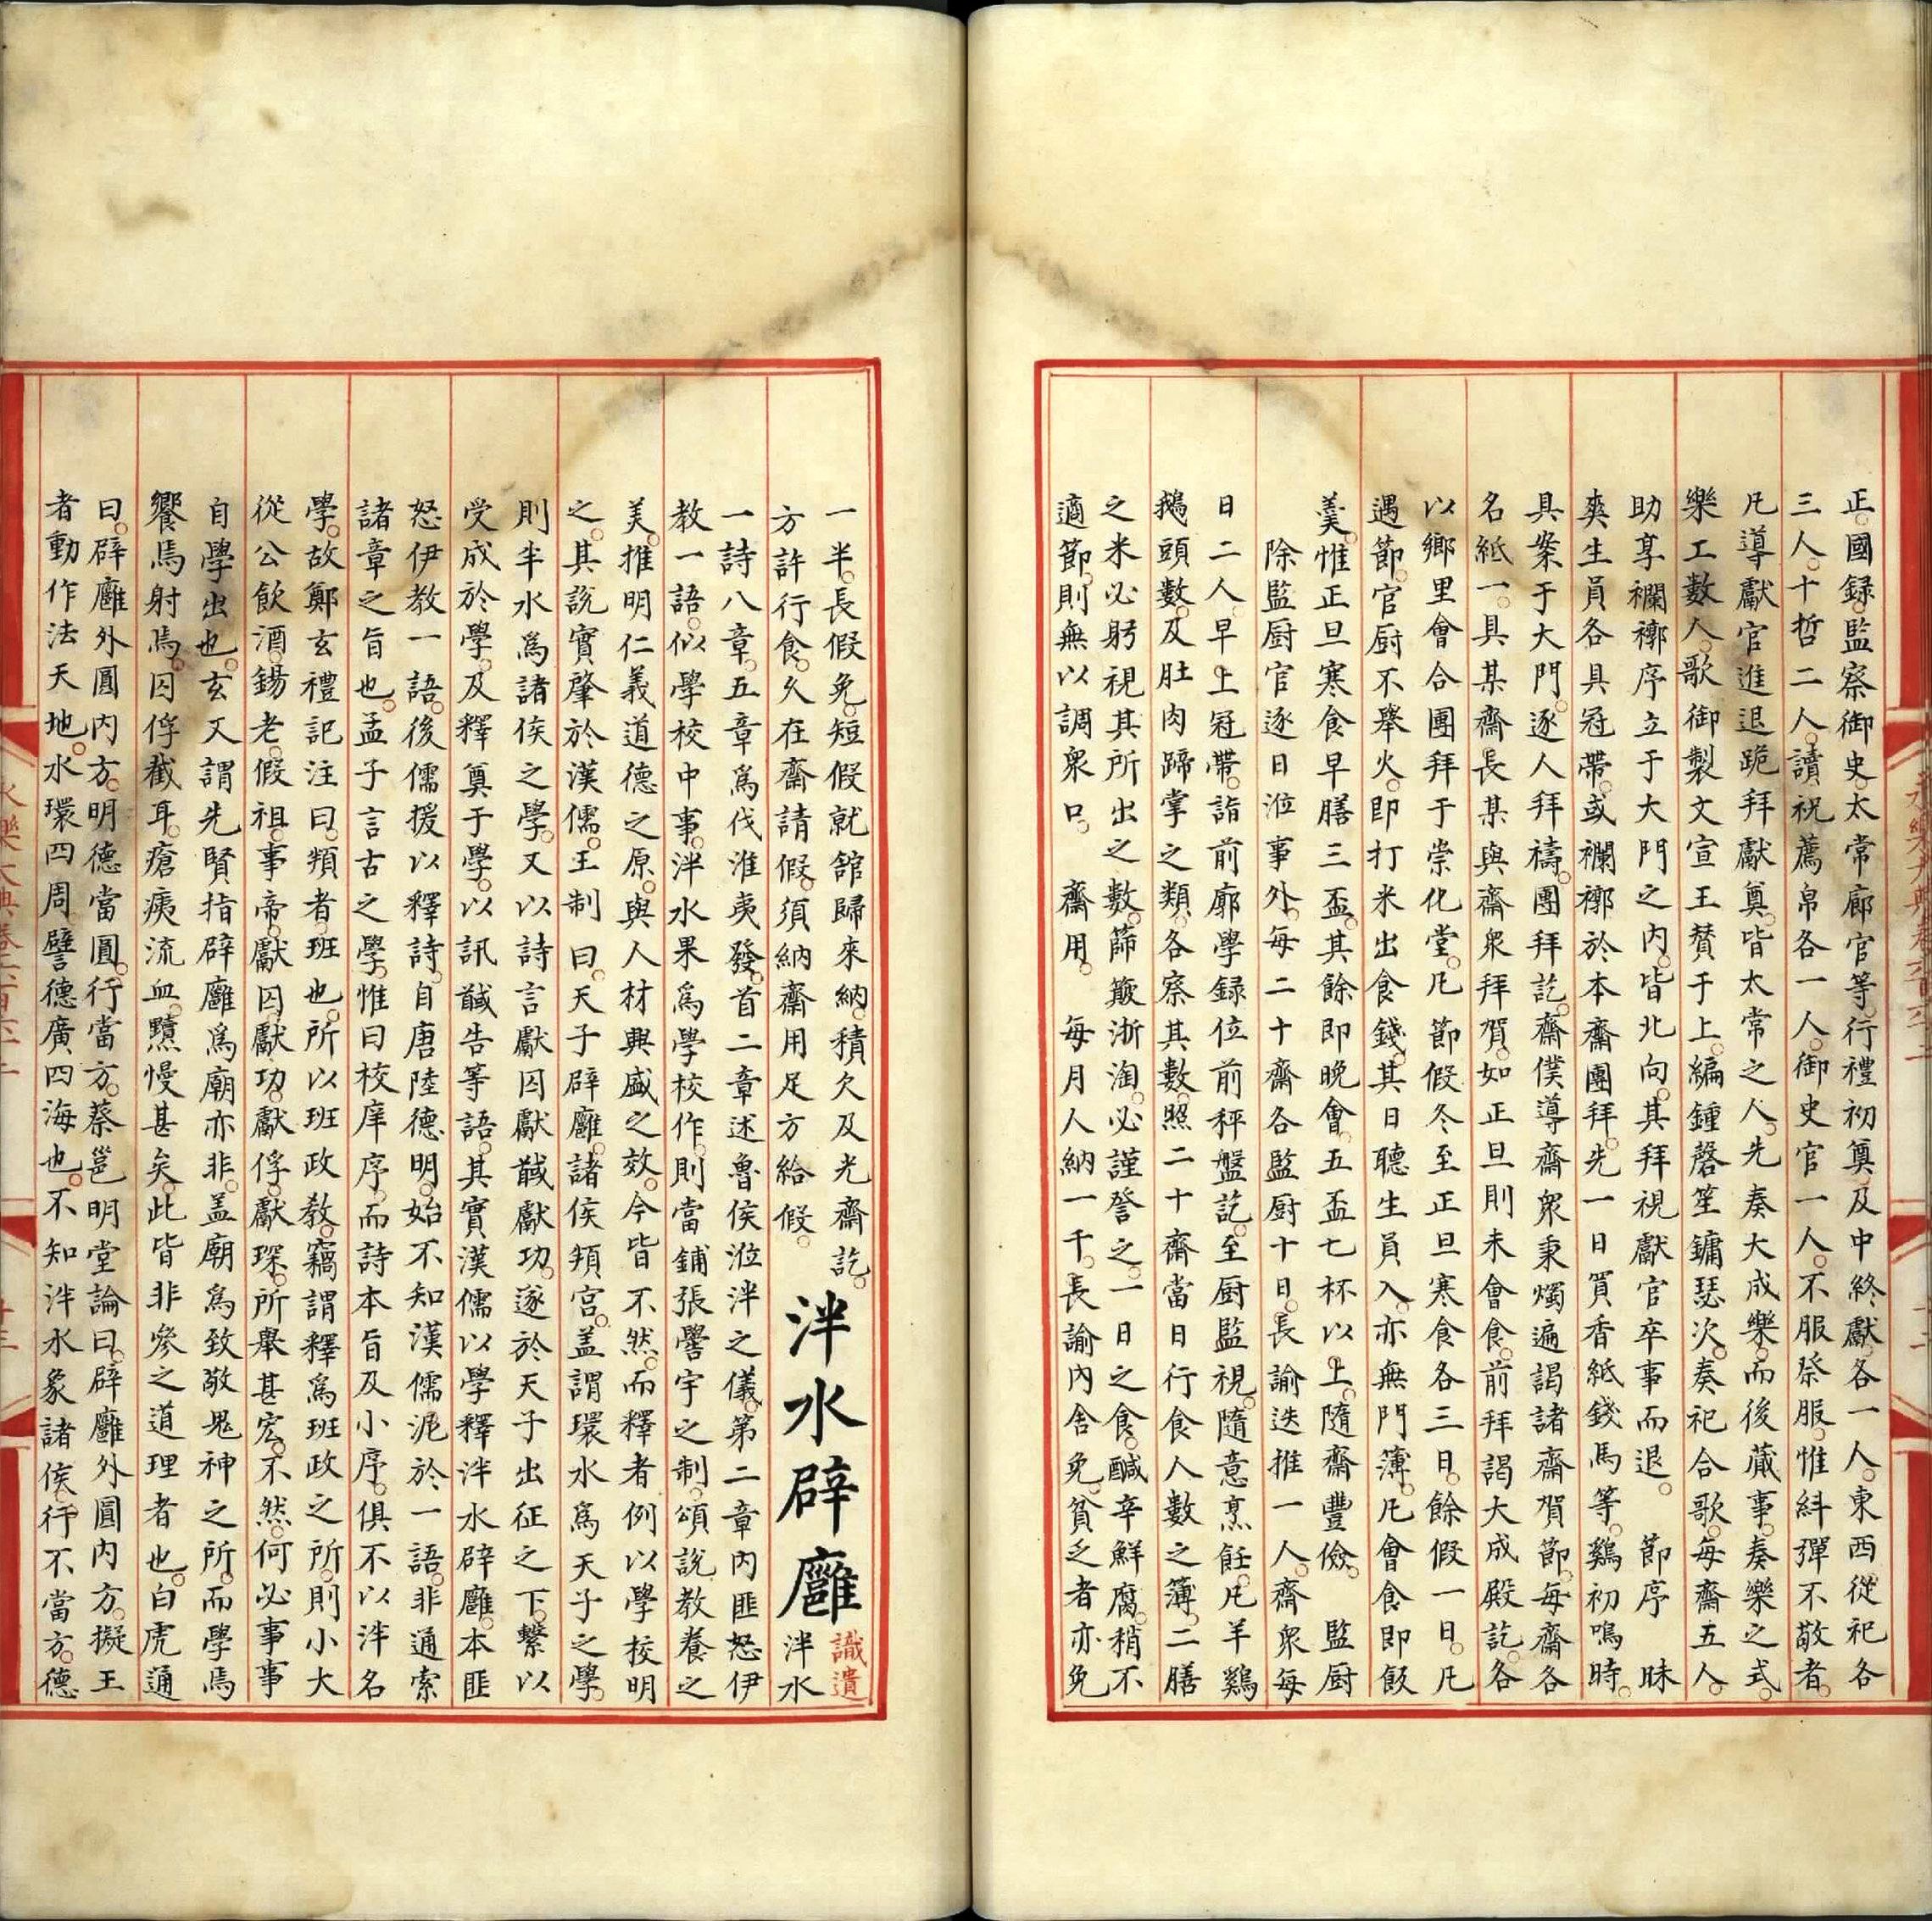 正國録監察御史太常廊官等行禮初奠及中終獻各一人東西從祀各
三人十哲二人讀祝薦帛各一人御史官一人不服祭服惟糾彈不敬者
凡導獻官進退跪拜獻奠皆太常之人先奏大成樂而後蕆事奏樂之式
樂工數人歌御製文宣王賛于上編鍾磬笙鏞瑟次奏祀合歌每齋五人
助享襴㡒序立于大門之内皆北向其拜視獻官卒事而退 節序 昧
爽生員各具冠帶或襴㡒於本齋團拜先一日買香紙錢馬等鷄初鳴時
具案于大門逐人拜禱團拜訖齋僕導齋衆秉燭遍謁諸齋賀節每齋各
名紙一具某齋長某與齋衆拜賀如正旦則未會食前拜謁大成殿訖各
以鄉里會合團拜于崇化堂凡節假冬至正旦寒食各三日餘假一日凡
遇節官厨不舉火即打米出食錢其日聽生員入亦無門簿凡會食即飯
羮惟正旦寒食早膳三盃其餘即晚會五盃七杯以上隨齋豐儉 監厨
除監厨官逐日涖事外每二十齋各監厨十日長諭迭推一人齋衆每
日二人早上冠帶詣前廊學録位前秤盤訖至厨監視隨意烹飪凡羊鷄
鵝頭數及肚肉蹄掌之類各察其數照二十齋當日行食人數之簿二膳
之米必躬視其所出之數篩簸淅淘必謹詧之一日之食鹹辛鮮腐稍不
適節則無以調衆口 齋用 每月人納一千長諭内舍免貧乏者亦免
一半長假免短假就舘歸來納積欠及光齋訖
方許行食久在齋請假須納齋用足方給假
泮水辟廱
識遺
泮水
一詩八章五章爲伐淮夷發首二章述魯侯涖泮之儀第二章内匪怒伊
教一語似學校中事泮水果爲學校作則當鋪張黌宇之制頌說教養之
美推明仁義道德之原與人材興盛之效今皆不然而釋者例以學校明
之其說實肇於漢儒王制曰天子辟廱諸侯頖宫盖謂環水爲天子之學
則半水爲諸侯之學又以詩言獻囚獻馘獻功遂於天子出征之下繫以
受成於學及釋奠于學以訊馘告等語其實漢儒以學釋泮水辟廱本匪
怒伊教一語後儒援以釋詩自唐陸德明始不知漢儒泥於一語非通索
諸章之旨也孟子言古之學惟曰校庠序而詩本旨及小序俱不以泮名
學故鄭玄禮記注曰頖者班也所以班政教竊謂釋爲班政之所則小大
從公飲酒鍚老假祖事帝獻囚獻功獻俘獻琛所舉甚宏不然何必事事
自學出也玄又謂先賢指辟廱爲廟亦非盖廟爲致敬鬼神之所而學焉
饗焉射焉囚俘截耳瘡痍流血黷慢甚矣此皆非參之道理者也白虎通
曰辟廱外圓内方明德當圓行當方蔡邕明堂論曰辟廱外圓内方擬王
者動作法天地水環四周譬德廣四海也不知泮水象諸侯行不當方德